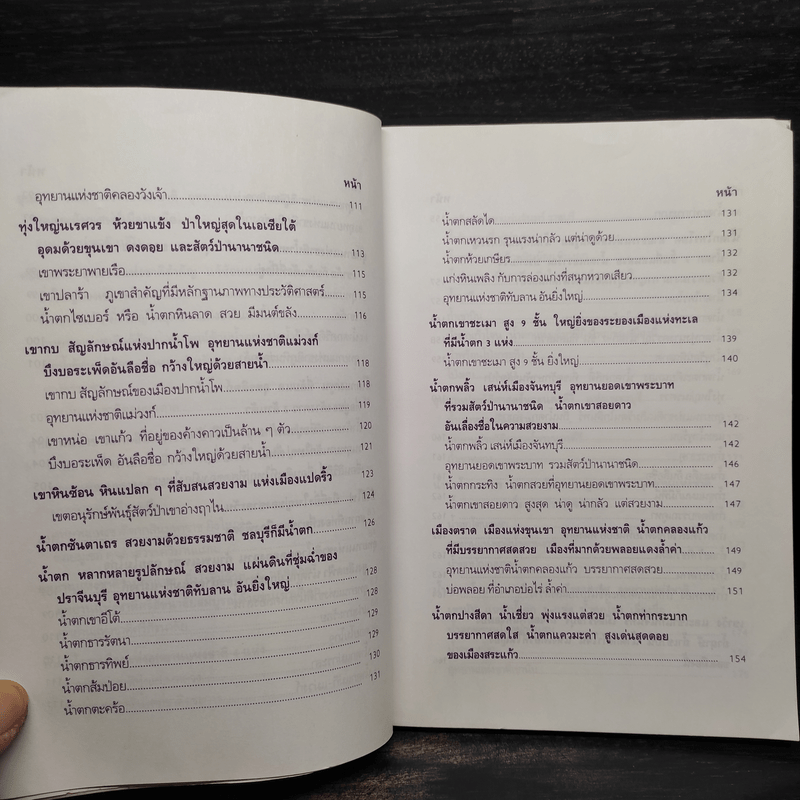 หน้า
อุทยานแห่งชาติคลองวังเจ้า.......... 111
ทุ่งใหญ่นเรศวร ห้วยขาแข้ง ป่าใหญ่สุดในเอเซียใต้
อุดมด้วยขุนเขา ดงดอย และสัตว์ป่านานาชนิด.......... 113
เขาพระยาพายเรือ.......... 115
เขาปลาร้า ภูเขาสำคัญที่มีหลักฐานภาพทางประวัติศาสตร์.... 115
น้ำตกไซเบอร์ หรือ น้ำตกหินลาด สวย มีมนต์ขลัง.......... 116
เขากบ สัญลักษณ์แห่งปากน้ำโพ อุทยานแห่งชาติแม่วงก์
บึงบอระเพ็ดอันลือชื่อ กว้างใหญ่ด้วยสายน้ำ.......... 118
เขากบ สัญลักษณ์ของเมืองปากน้ำโพ.......... 118
อุทยานแห่งชาติแม่วงก์.......... 119
เขาหน่อ เขาแก้ว ที่อยู่ของค้างคาวเป็นล้าน ๆ ตัว.......... 120
บึงบอระเพ็ด อันลือชื่อ กว้างใหญ่ด้วยสายน้ำ.......... 121
เขาหินซ้อน หินแปลก ๆ ที่สับสนสวยงาม แห่งเมืองแปดริ้ว 123
เขตอนุรักษ์พันธุ์สัตว์ป่าเขาอ่างฤาไน.......... 124
น้ำตกชันตาเถร สวยงามด้วยธรรมชาติ ชลบุรีก็มีน้ำตก.......... 126
น้ำตก หลากหลายรูปลักษณ์ สวยงาม แผ่นดินที่ชุ่มฉ่ำของ
ปราจีนบุรี อุทยานแห่งชาติทับลาน อันยิ่งใหญ่.......... 128
น้ำตกเขาอีโต้.......... 128
น้ำตกธารรัตนา.......... 129
น้ำตกธารทิพย์.......... 129
น้ำตกส้มป่อย.......... 130
น้ำตกตะคร้อ.......... 131
หน้า
น้ำตกสลัดได.......... 131
น้ำตกเหวนรก รุนแรงน่ากลัว แต่น่าดูด้วย.......... 131
น้ำตกห้วยเกษียร.......... 132
แก่งหินเพลิง กับการล่องแก่งที่สนุกหวาดเสียว.......... 132
อุทยานแห่งชาติทับลาน อันยิ่งใหญ่.......... 134
น้ำตกเขาชะเมา สูง 9 ชั้น ใหญ่ยิ่งของระยองเมืองแห่งทะเล
ที่มีน้ำตก 3 แห่ง.......... 139
น้ำตกเขาชะเมา สูง 9 ชั้น ยิ่งใหญ่.......... 140
น้ำตกพลิ้ว เสน่ห์เมืองจันทบุรี อุทยานยอดเขาพระบาท
ที่รวมสัตว์ป่านานาชนิด น้ำตกเขาสอยดาว
อันเลื่องชื่อในความสวยงาม.......... 142
น้ำตกพลิ้ว เสน่ห์เมืองจันทบุรี.......... 142
อุทยานยอดเขาพระบาท รวมสัตว์ป่านานาชนิด.......... 146
น้ำตกกระทิง น้ำตกสวยที่อุทยานยอดเขาพระบาท.......... 147
น้ำตกเขาสอยดาว สูงสุด น่าดู น่ากลัว แต่สวยงาม.......... 147
เมืองตราด เมืองแห่งขุนเขา อุทยานแห่งชาติ น้ำตกคลองแก้ว
ที่มีบรรยากาศสดสวย เมืองที่มากด้วยพลอยแดงล้ำค่า.......... 149
อุทยานแห่งชาติน้ำตกคลองแก้ว บรรยากาศสดสวย.......... 149
บ่อพลอย ที่อำเภอบ่อไร่ ล้ำค่า.......... 151
น้ำตกปางสีดา น้ำเชี่ยว พุ่งแรงแต่สวย น้ำตกท่ากระบาก
บรรยากาศสดใส น้ำตกแควมะค่า สูงเด่นสุดดอย
ของเมืองสระแก้ว.......... 154